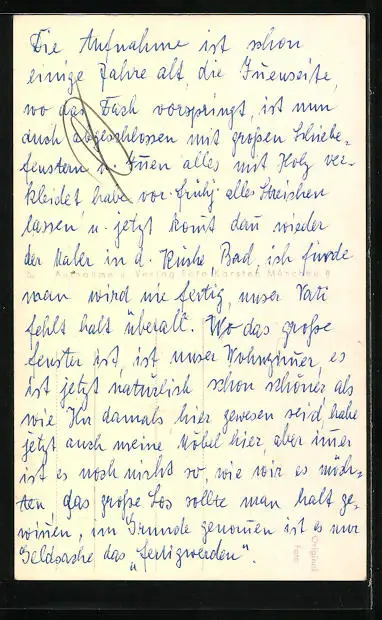 Die Aufnahme ist schon
einige Jahre alt, die Innenseite,
wo das Dach vorspringt, ist nun
durch abgeschlossen mit großen Schiebe-
fenstern u. Innen alles mit Holz ver-
kleidet habe vor. Frühj. alles Streichen
lassen u. jetzt komt dan wieder
der Maler in d. Küche, Bad, ich finde
Aufnahme u. Verlag Foto Karsten München 8
man wird nie fertig, unser Vati
fehlt halt überall. Wo das große
fenster ist, ist unser Wohnzimer, es
ist jetzt natürlich schon schöner als
wie Ihr damals hier gewesen seid, habe
jetzt auch meine Möbel hier, aber imer
ist es noch nicht so, wie wir es möch-
ten, das große Los sollte man halt ge-
winnen, im Grunde genomen ist es nur
Geldsache das „fertigwerden".
Original
Foto